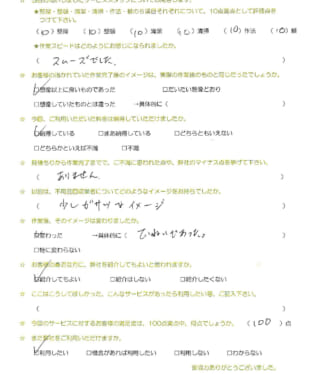 ★整理・整頓・清潔・清掃・作法・躾の6項目それぞれについて、10点満点として評価点をつけて下さい。
(10)整理 (10)整頓 (10)清潔 (10)清掃 (10)作法 (10)躾
★作業スピードはどのようにお感じになられましたか。
( スムーズでした。 )
☆ お客様の描かれていた作業完了後のイメージは、実際の作業後のものと同じだったでしょうか。
☑想像以上に良いものであった □だいたい想像どおり
□想像していたものとは違った →具体的に( )
☆ 今回、ご利用いただいた料金は納得していただけましたか。
☑納得している □まあ納得している □どちらともいえない
□どちらかといえば不満 □不満
☆ 見積もりから作業完了までで、ご不満に思われた点や、弊社のマイナス点を挙げて下さい。
( ありません )
☆ 以前は、不用品回収業者についてどのようなイメージをお持ちでしたか。
( 少しガサツなイメージ )
☆ 作業後、そのイメージは変わりましたか。
☑変わった →具体的に( ていねいだった。 )
□特に変わらない
☆ お客様の身近な方に、弊社を紹介してもよいと思われますか。
☑紹介してもよい □紹介はしない □紹介したくない
☆ ここはこうしてほしかった、こんなサービスがあったら利用したい等、ご記入下さい。
( )
☆ 今回のサービスに対するお客様の満足度は、100点満点中、何点でしょうか。 (100)点
☆ また弊社をご利用いただけますか。
☑利用したい □機会があれば利用したい □利用しない □わからない
ご協力ありがとうございました。